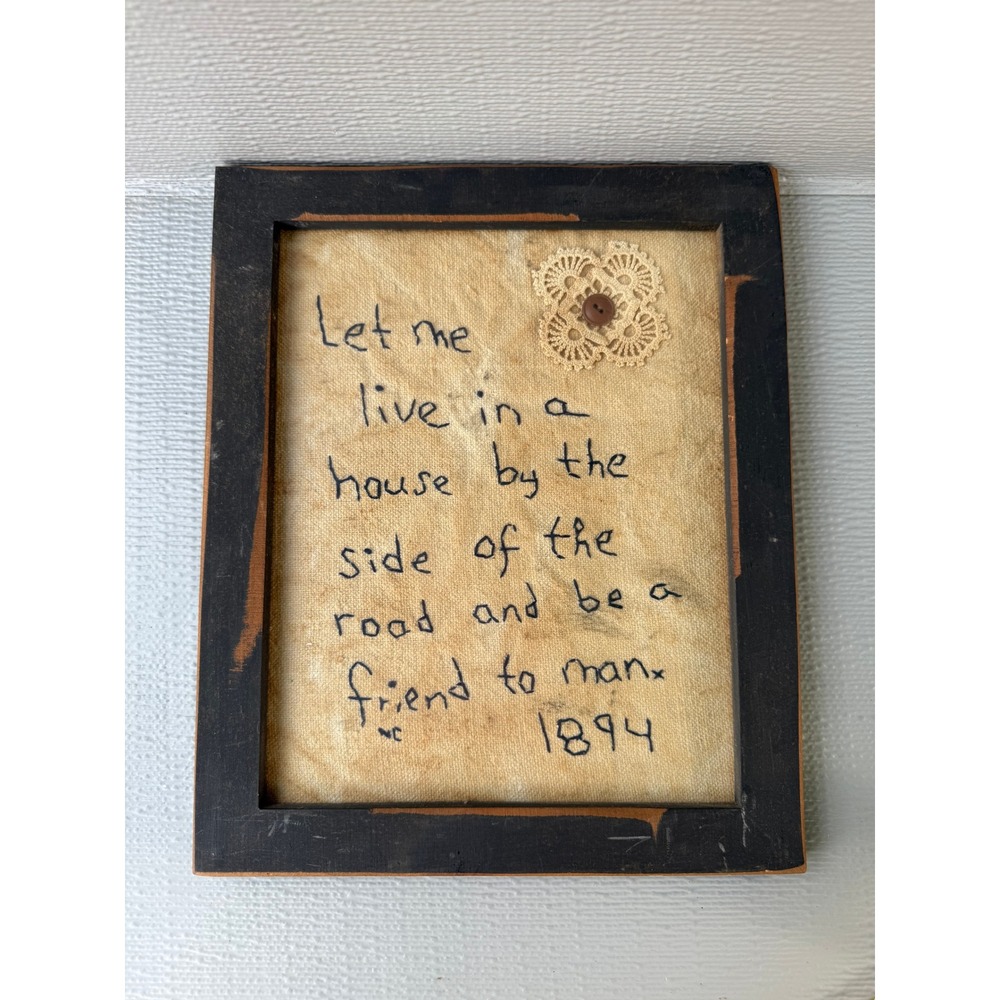 Let me
live in a
house by the
side of the
road and be a
friend to man.
1894